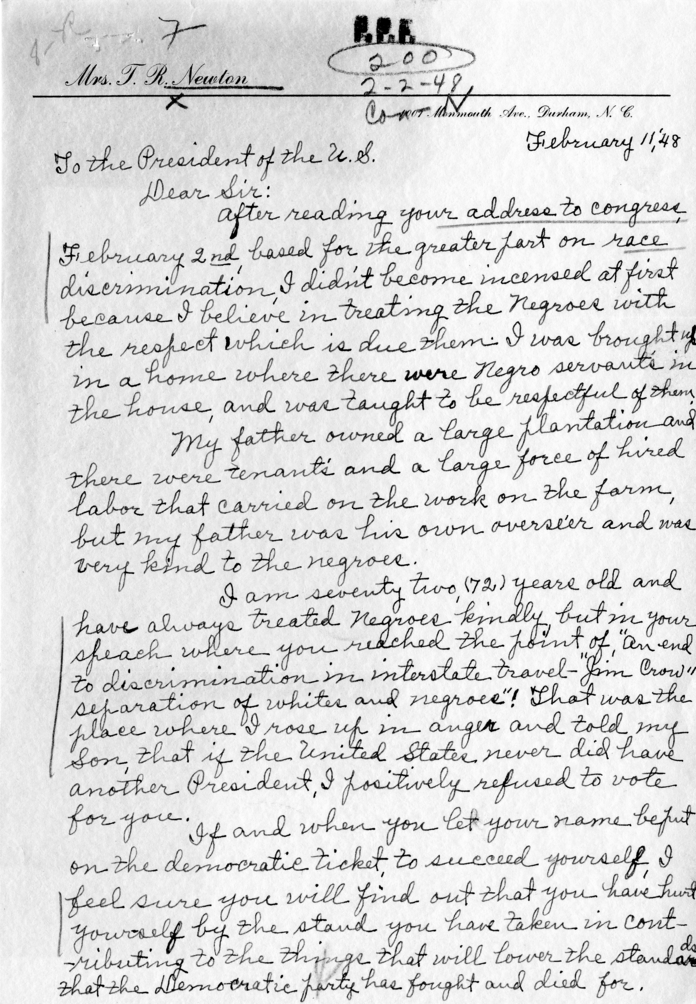 7
P.P.F.
200
2-2-48
Mrs. T. R. Newton
x
Monmouth Ave., Durham, N. C.
February 11,'48
To the President of the U.S.
Dear Sir:
after reading your address to congress,
February 2nd, based for the greater part on race
discrimination, I didn't become incensed at first
because I believe in treating the Negroes with
the respect which is due them. I was brought up
in a home where there were Negro servants in
the house, and was taught to be respectful of them.
My father owned a large plantation and
there were tenants and a large force of hired
labor that carried on the work on the farm,
but my father was his own overseer and was
very kind to the negroes.
I am seventy two, (72) years old and
have always treated Negroes kindly, but in your
speach where you reached the point of, "An end
to discrimination in interstate travel-"Jim Crow"
separation of whites and negroes"! That was the
place where I rose up in anger and told my
Son, that if the United States never did have
another President, I positively refused to vote
for you.
If and when you let your name be put
on the democratic ticket, to succeed yourself, I
feel sure you will find out that you have hurt
yourself by the stand you have taken in cont-
-ributing to the things that will lower the standards
that the Democratic party has fought and died for.